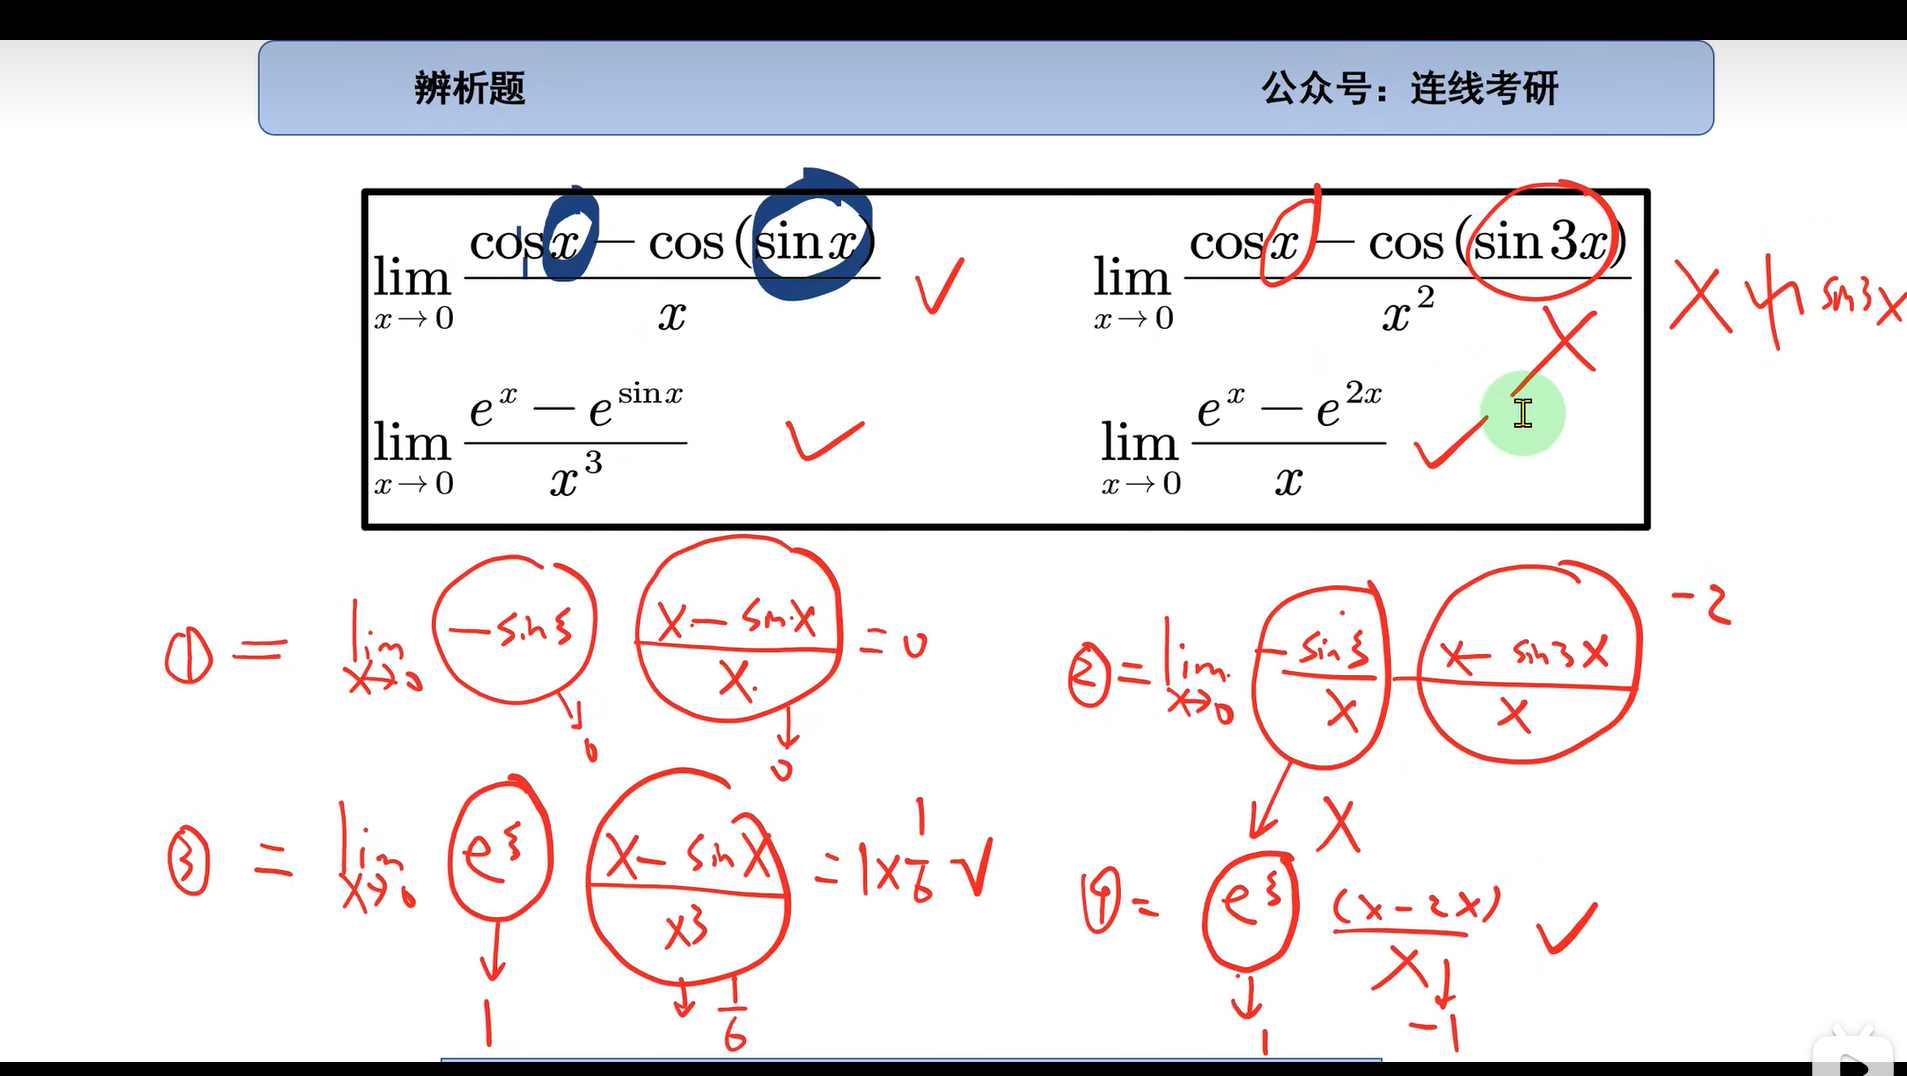 辨析题 公众号：连线考研
lim x→0 (cos x − cos (sin x)) / x ✓
lim x→0 (cos x − cos (sin 3x)) / x² ✗ X 和 sin3x
lim x→0 (e^x − e^(sin x)) / x³ ✓
lim x→0 (e^x − e^(2x)) / x ✓
① = lim x→0 −sin ξ (x − sin x) / x = 0
0 0
② = lim x→0 (− sin ξ) / x (x − sin 3x) / x −2
X
③ = lim x→0 e^ξ (x − sin x) / x3 = 1 × 1/6 ✓
1 1/6
④ = e^ξ (x − 2x) / x ✓
1 −1